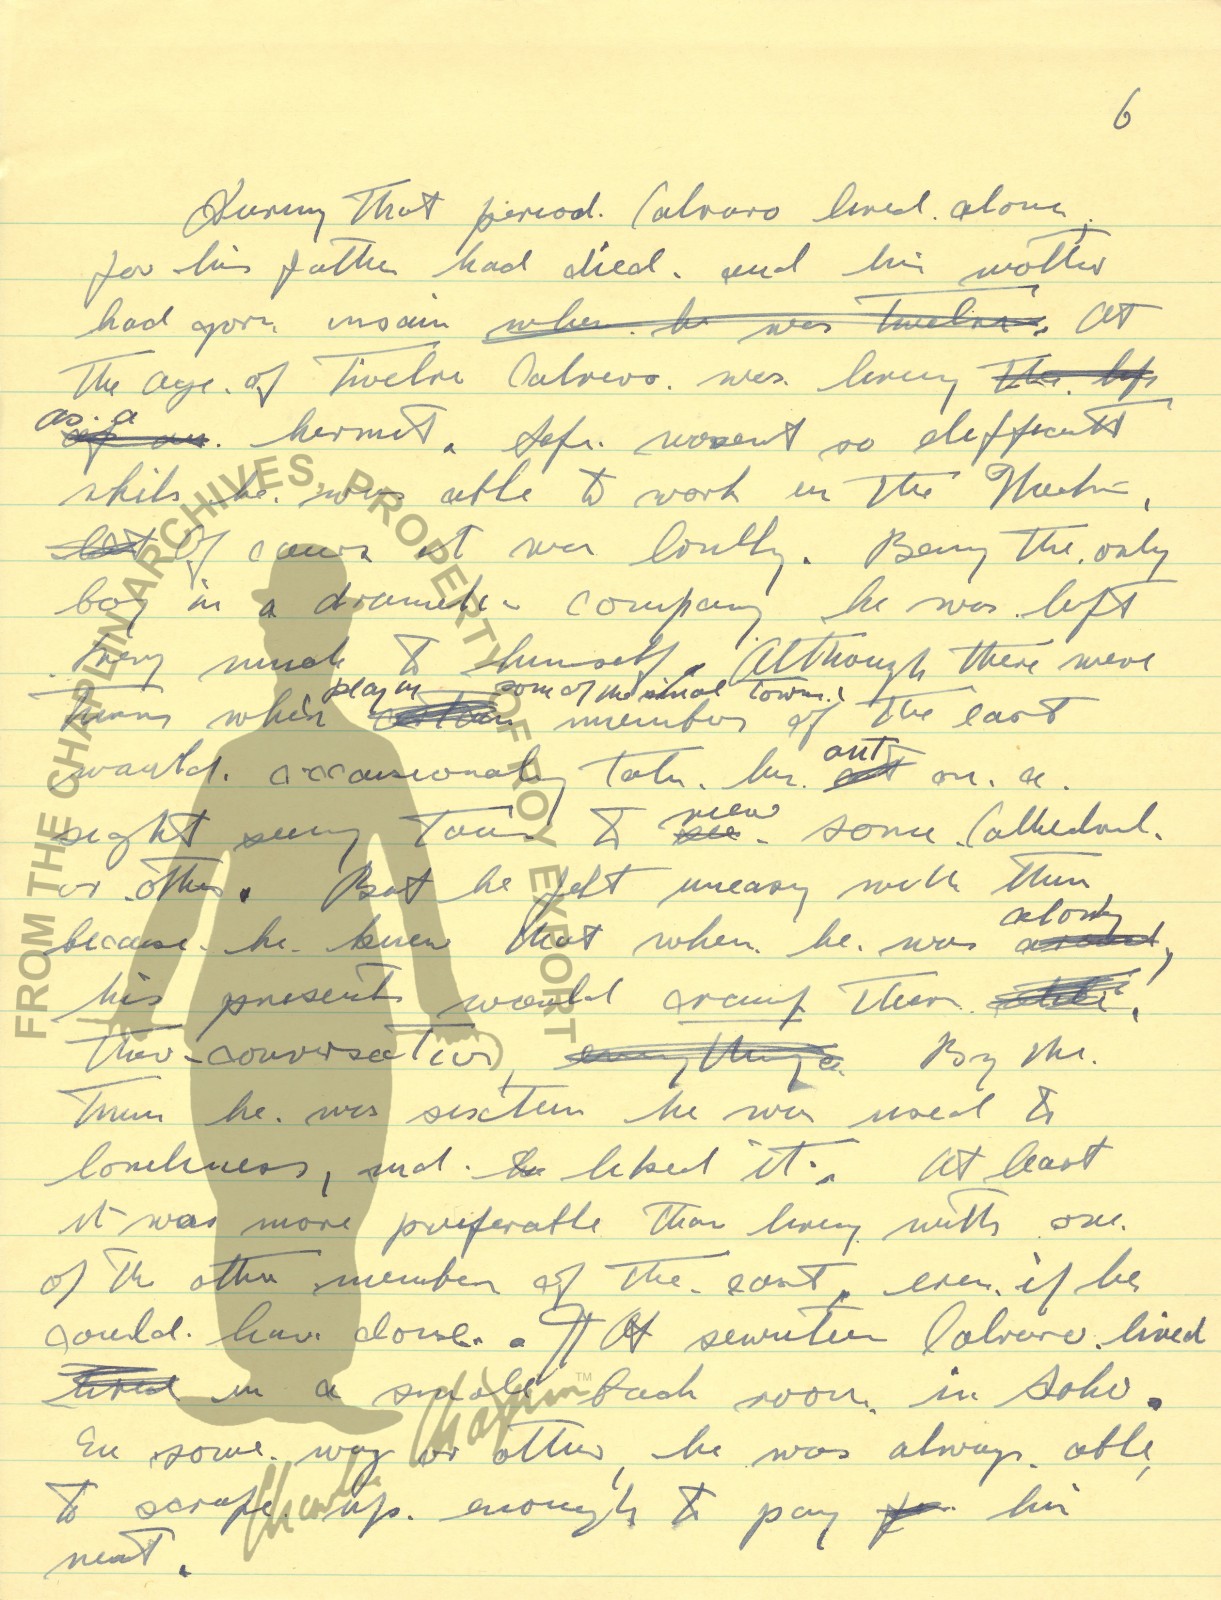 6
During that period. Calvaro lived. alone.
for his father had died. and his mother
had gorn insain when he was twelve. At
the age. of Twelve Calvero. was. living the life
as. a
of an. hermit. Life. wasent so difficult
while. he. was able to work in the Theatre,
but Of cours it was lonely. Being the. only
boy in a dramatic company he was left
very much to himself. Although there were
playing some of the small towns.
times when certain members of the cast
would. occasionaly take. him. out on. a.
sight seeing tour to see. view some Cathedral.
or other. But he felt uneasy with them
because. he. knew that when. he. was along
around,
his presents would cramp them.
their conversation, everything. By the.
time he. was sixteen he was used to
loneliness, and. he liked it. At least
it was more preferable than living with one.
of the other member of the. cast, even. if he
could. have done. At seventeen Calvero. lived
lived in a small back room. in Soho.
In some. way or other, he was always. able,
to scrape. up. enough to pay for his
rent.
FROM THE CHAPLIN ARCHIVES, PROPERTY OF ROY EXPORT
Charlie Chaplin™